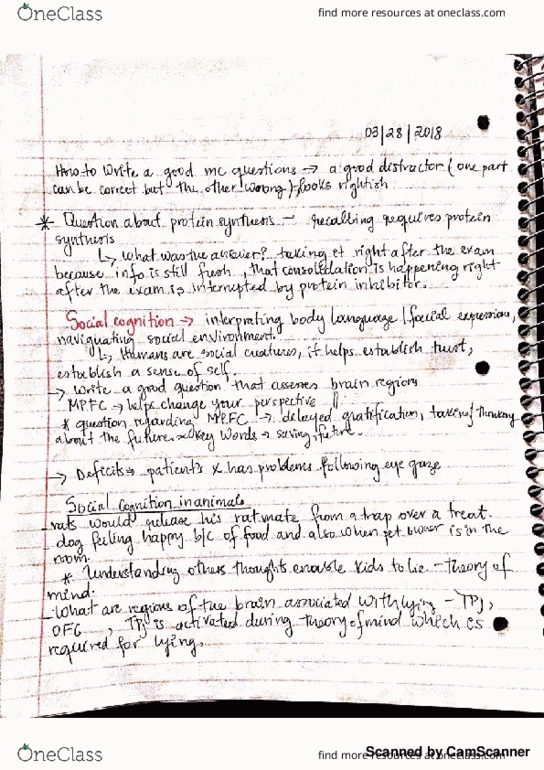 OneClass
find more resources at oneclass.com
03|28|2018
How to write a good mc questions → a good distractor (one part
can be correct but the other wrong) → looks rightish
* Question about protein synthesis – recalling requires protein
synthesis
↳ what was the answer? taking it right after the exam
because info is still fresh, that consolidation is happening right
after the exam is interrupted by protein inhibitor.
Social cognition → interprating body language | facial expression,
naviguating social environment.
↳ Humans are social creatures, it helps establish trust,
establish a sense of self.
→ Write a good question that assesses brain regions
MPFC → helps change your perspective
* question regarding MPFC → delayed gratification, taking/thinking
about the future key words → saving, future.
→ Deficits → patient's x has problems following eye gaze
Social Cognition in animals
rats would release his rat mate from a trap over a treat.
dog feeling happy b/c of food and also when pet owner is in the
room.
* Understanding others thoughts enable kids to lie – theory of
mind.
- What are regions of the brain associated with lying – TPJ,
OFG , TPJ is activated during theory of mind which is
required for lying.
OneClass
find more resources at oneclass.com
Scanned by CamScanner